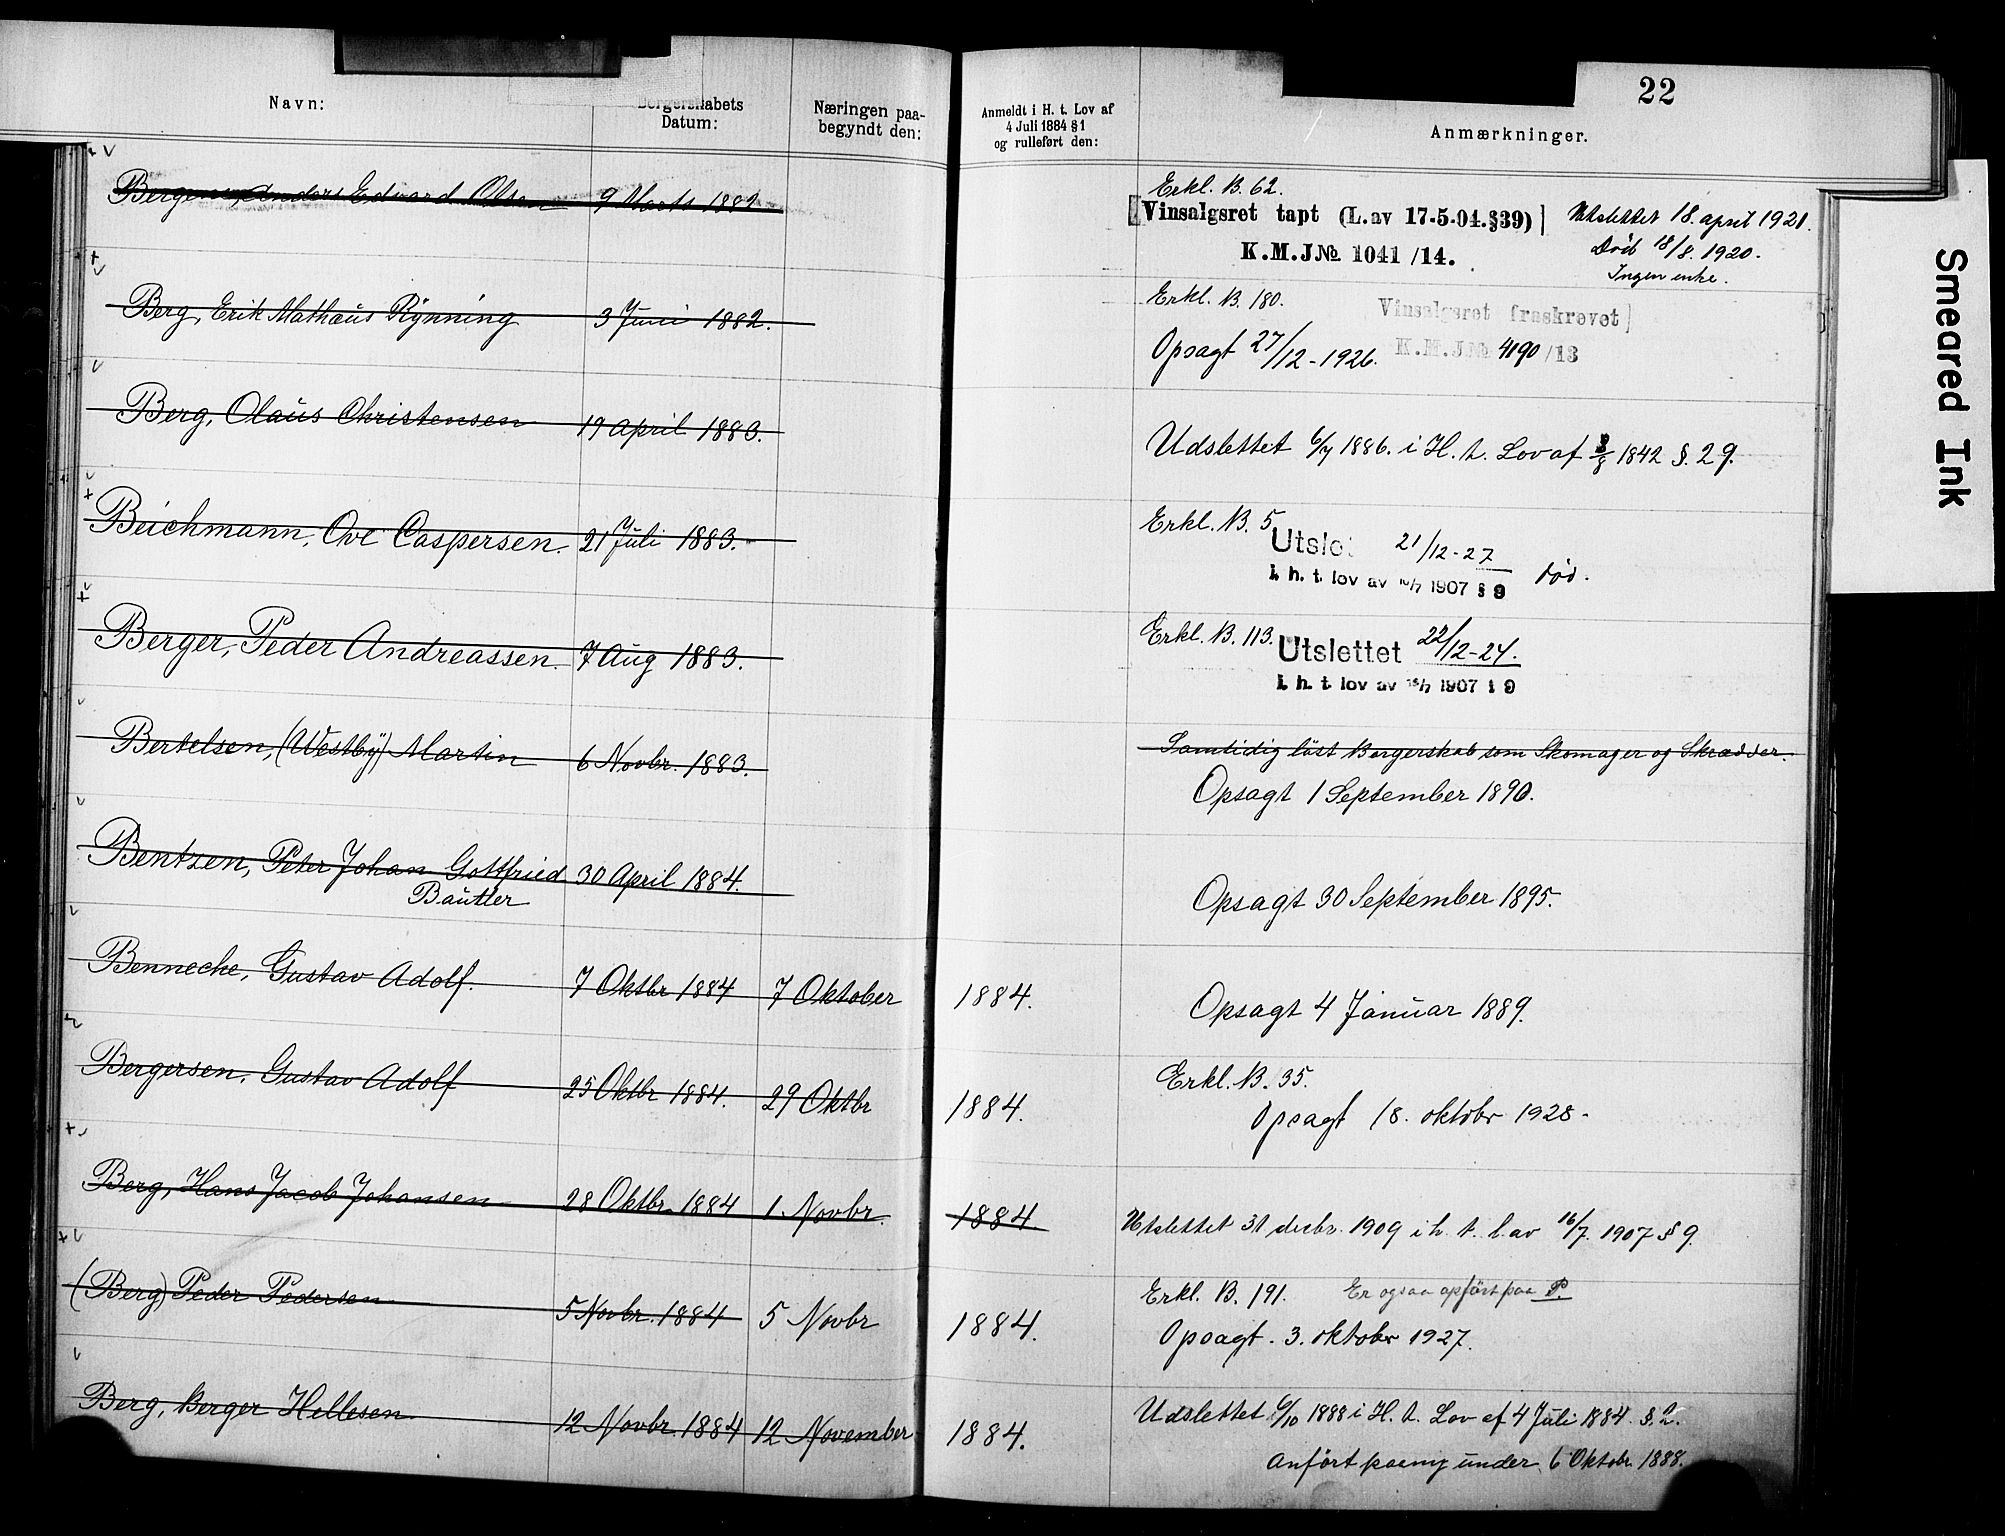 22
Navn:
Borgerskabets Datum:
Næringen paabegyndt den:
Anmeldt i H. t. Lov af 4 Juli 1884 § 1 og rulleført den:
Anmærkninger.
Smeared Ink
Anders Edvard Olsen 9 Marts 1882
Erkl. B. 62.
[Vinsalgsret tapt (L.av 17-5-04.§39)]
K.M.J№ 1041/14.
Utslettet 18. april 1921.
Død 18/8. 1920.
Ingen enke.
Berg, Erik Mathæus Rynning 3 Juni 1882.
Erkl. B. 180.
Vinsalgsret fraskrevet]
Opsagt 27/12-1926. K.M.J№ 4190/13
Berg, Olaus Christensen 19 April 1883.
Udslettet 6/7 1886. i H. t. Lov af 8/8 1842 §. 29.
Beichmann, Ove Caspersen. 21 Juli 1883.
Erkl. B. 5
Utslet 21/12-27
i. h. t. lov av 16/7 1907 § 9 død.
Berger, Peder Andreassen. 7 Aug 1883.
Erkl. B. 113.
Utslettet 22/12-24.
i. h. t. lov av 16/7 1907 § 9
Bertelsen, (Westby) Martin 6 Novbr. 1883.
Samtidig løst Borgerskab som Skomager og Skrædder.
Opsagt 1 September 1890.
Bentzen, Peter Johan Gottfried 30 April 1884.
Bautler
Opsagt 30 September 1895.
Benneche, Gustav Adolf. 7 Oktbr 1884 7 Oktober 1884.
Opsagt 4 Januar 1889.
Bergersen, Gustav Adolf 25 Oktbr 1884. 29 Oktbr 1884.
Erkl. B. 35.
Opsagt 18. oktobr 1928.
Berg, Hans Jacob Johansen 28 Oktbr 1884 1. Novbr. 1884
Utslettet 31 decbr. 1909 i h. t. l. av 16/7. 1907 § 9.
(Berg) Peder Pedersen 5 Novbr. 1884 5 Novbr 1884.
Erkl. B. 191. Er ogsaa opført paa P.
Opsagt. 3. oktober 1927.
Berg, Berger Hellesen 12 Novbr. 1884 12 November 1884.
Udslettet 6/10 1888 i H. t. Lov af 4 Juli 1884 §. 2.
Anført paany under 6 Oktobr. 1888.